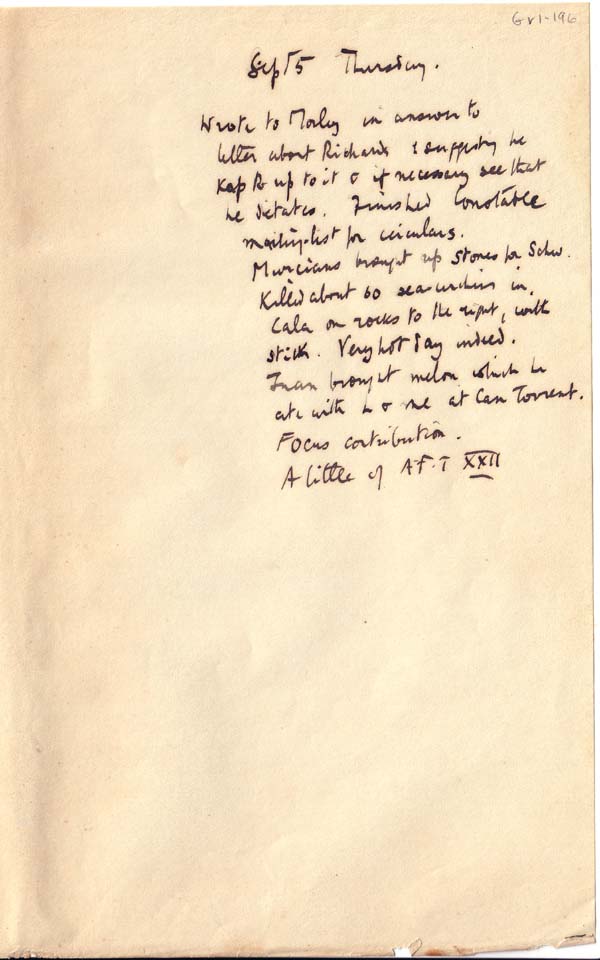 GV1-196
Sept 5 Thursday.
Wrote to Morley in answer to
letter about Richards & suggesting he
keep R up to it & if necessary see that
he dictates. Finished Constable
mailing-list for circulars.
Murcians brought up stones for Schw.
Killed about 60 sea-urchins in
Cala on rocks to the right, with
stick. Very hot day indeed.
Juan brought melon which he
ate with L & me at Can Torrent.
Focus contribution.
A little of A.F.T XXII